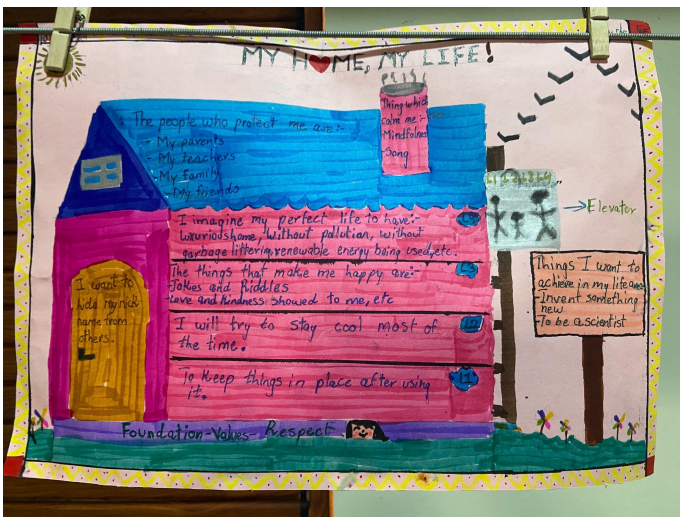 MY HOME, MY LIFE!
The people who protect me are:-
- My parents
- My teachers
- My family
- My friends
Thing which
calm me:-
- Mindfulness
- Song
Elevator
I imagine my perfect life to have:-
luxurious home, without pollution, without
garbage littering, renewable energy being used, etc.
The things that make me happy are:-
- Jokes and Riddles
- Love and Kindness showed to me, etc
L3
I will try to stay cool most of
the time.
To keep things in place after using
it.
L1
I want to
hide my nick
name from
others.
Things I want to
achieve in my life are:-
- Invent something
new
- To be a scientist
Foundation-Values- Respect